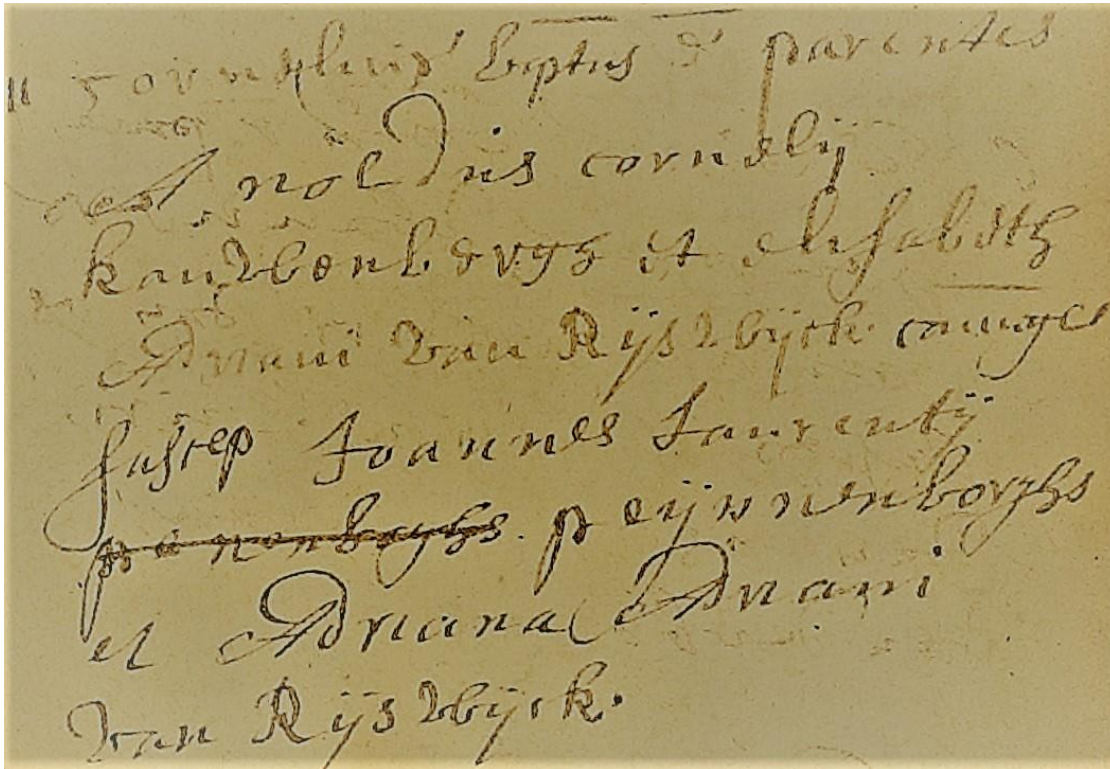 11 Cornelius bptus é parentes
Arnoldus cornelij
kouwenbergh et elisabeth
Adriani van Rijswijck coniuges
suscep Joannes Laurentij
peijnnenborghs
et Adriana Adriani
van Rijswijck.